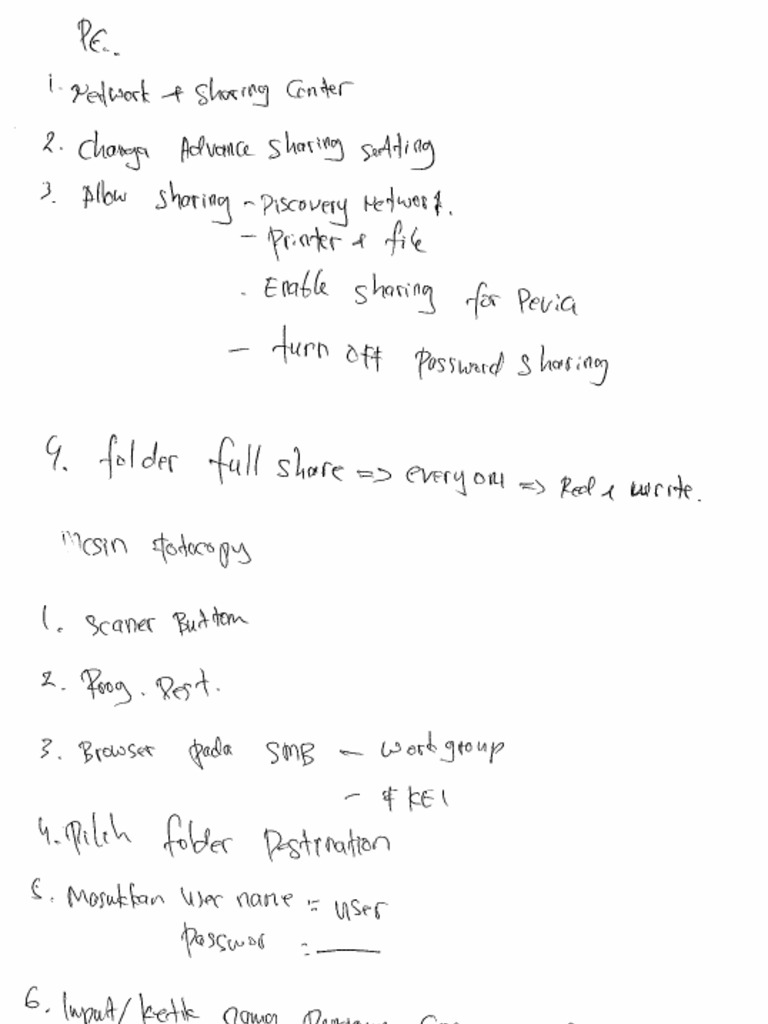 1. Network & Sharing Center
2. Change Advance Sharing Setting
3. Allow Sharing - Discovery Network.
- Printer & file
. Enable sharing for
- turn off Password Sharing
4. folder full share => everyone => Read & write.
Mesin Fotocopy
1. Scaner Button
2. Prog. Dest.
3. Browser pada SMB - workgroup
-
4. Pilih folder Destination
5. Masukkan User name = user
Passwor = ____
6. Input/ketik nama